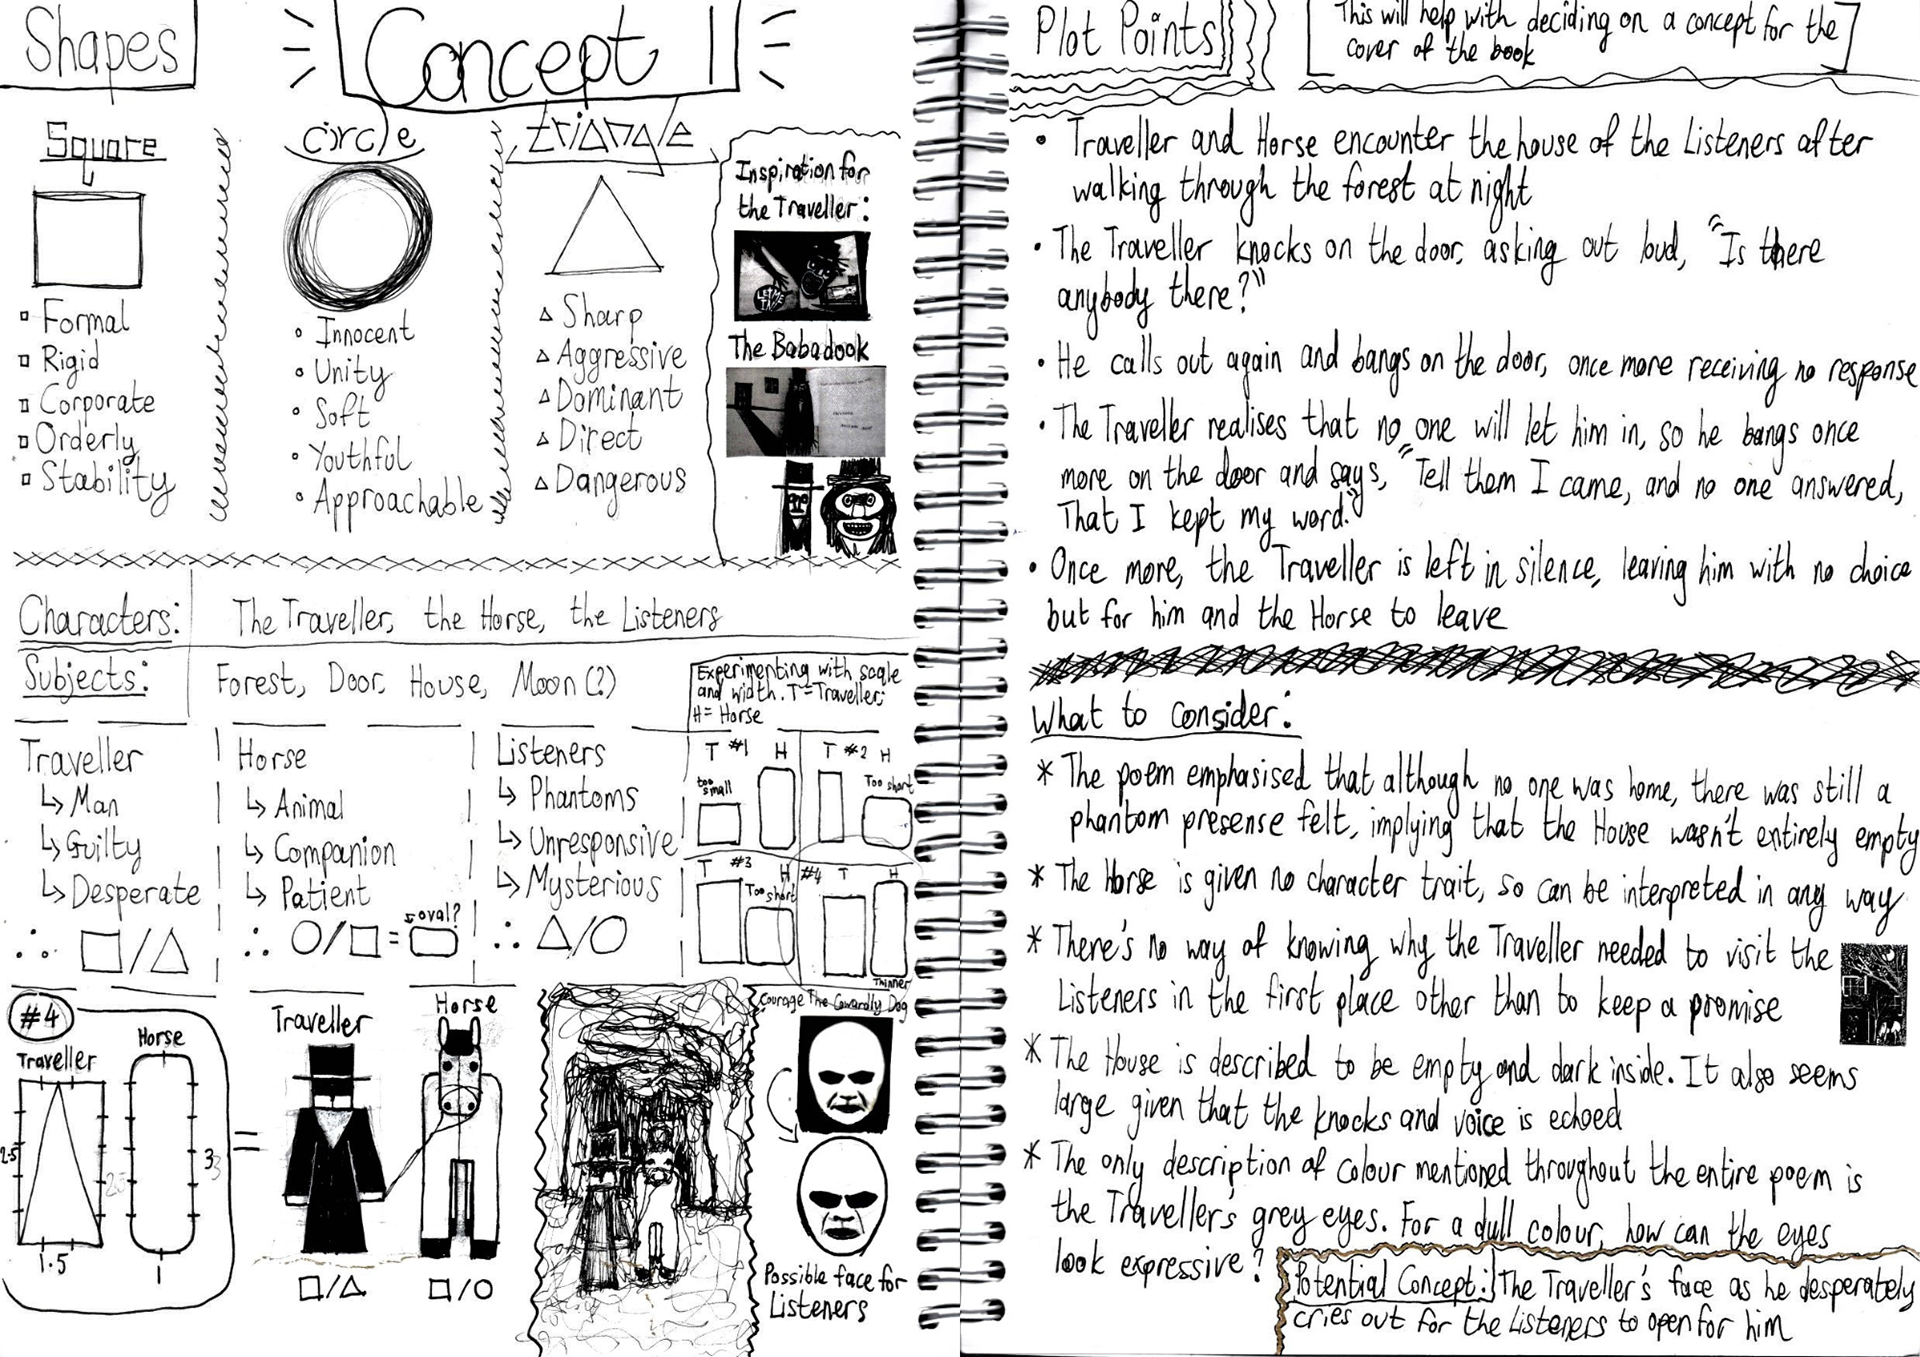 Shapes
Concept 1
Square
Formal
Rigid
Corporate
Orderly
Stability
circle
Innocent
Unity
Soft
Youthful
Approachable
triangle
Sharp
Aggressive
Dominant
Direct
Dangerous
Inspiration for
the Traveller:
LET ME IN!
The Babadook
Characters: The Traveller, the Horse, the Listeners
Subjects: Forest, Door, House, Moon (?)
Experimenting with scale
and width. T = Traveller;
H = Horse
Traveller
↳ Man
↳ Guilty
↳ Desperate
∴ □/△
Horse
↳ Animal
↳ Companion
↳ Patient
∴ ○/□ =
oval?
Listeners
↳ Phantoms
↳ Unresponsive
↳ Mysterious
∴ △/○
T #1 H
too
small
T #2 H
Too short
T #3 H
Too short
#4 T H
Thinner
#4
Traveller
2.5
1.5
Horse
3
1
=
Traveller
□/△
Horse
□/○
Courage The Cowardly Dog
Possible face for
Listeners
Plot Points
This will help with deciding on a concept for the
cover of the book
• Traveller and Horse encounter the house of the Listeners after
walking through the forest at night
• The Traveller knocks on the door, asking out loud, "Is there
anybody there?"
• He calls out again and bangs on the door, once more receiving no response
• The Traveller realises that no one will let him in, so he bangs once
more on the door and says, "Tell them I came, and no one answered,
That I kept my word."
• Once more, the Traveller is left in silence, leaving him with no choice
but for him and the Horse to leave
What to consider:
* The poem emphasised that although no one was home, there was still a
phantom presense felt, implying that the House wasn't entirely empty
* The Horse is given no character trait, so can be interpreted in any way
* There's no way of knowing why the Traveller needed to visit the
Listeners in the first place other than to keep a promise
* The House is described to be empty and dark inside. It also seems
large given that the knocks and voice is echoed
* The only description of colour mentioned throughout the entire poem is
the Traveller's grey eyes. For a dull colour, how can the eyes
look expressive?
Potential Concept: The Traveller's face as he desperately
cries out for the Listeners to open for him